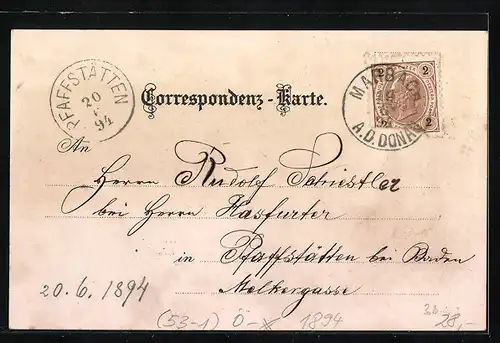 PFAFFSTÄTTEN
20
94
Correspondenz-Karte.
2 2
MARBACH
A.D. DONAU
An
Herrn Rudolf Schiestler
bei Herrn Hasfurter
in Pfaffstätten bei Baden
Melkergasse
20.6.1894
(53-1) Ö-x 1894
28,-